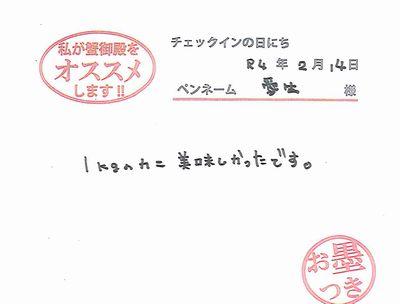 私が蟹御殿を
オススメ
します!!
チェックインの日にち
R4 年 2月 14日
ペンネーム 愛
様
1kgカニ 美味しかったです。
お墨
つき